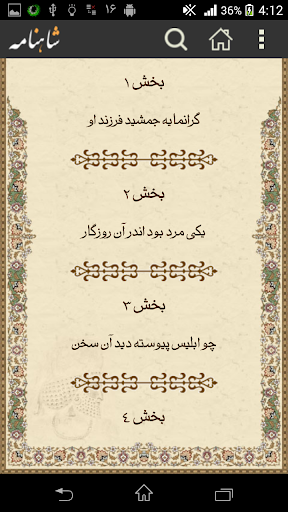 ۱۶ 36% 4:12
شاهنامه
بخش ۱
گرانمایه جمشید فرزند او
بخش ۲
یکی مرد بود اندر آن روزگار
بخش ۳
چو ابلیس پیوسته دید آن سخن
بخش ۴